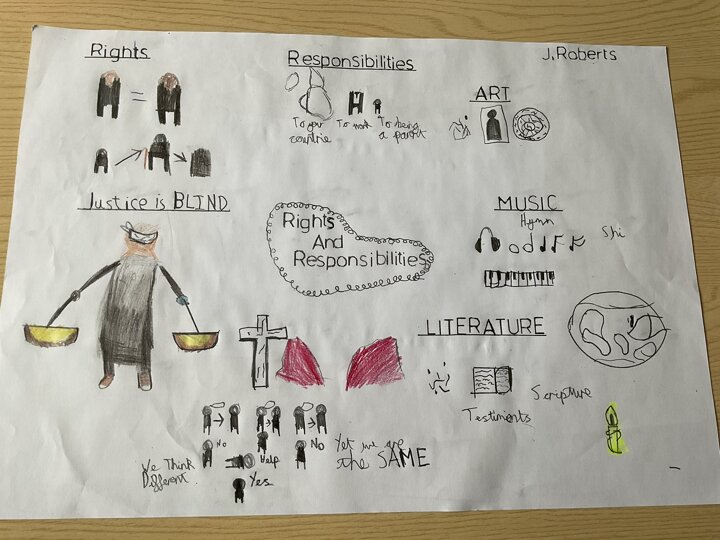 Rights
Responsibilities
J.Roberts
ART
To your
countrie
To work
To being
a parent
Justice is BLIND
MUSIC
Hymn
Shi
Rights
And
Responsibilities
LITERATURE
Scripture
Testiments
No
Help
No
Yes
We Think
Different.
Yet we are
the SAME